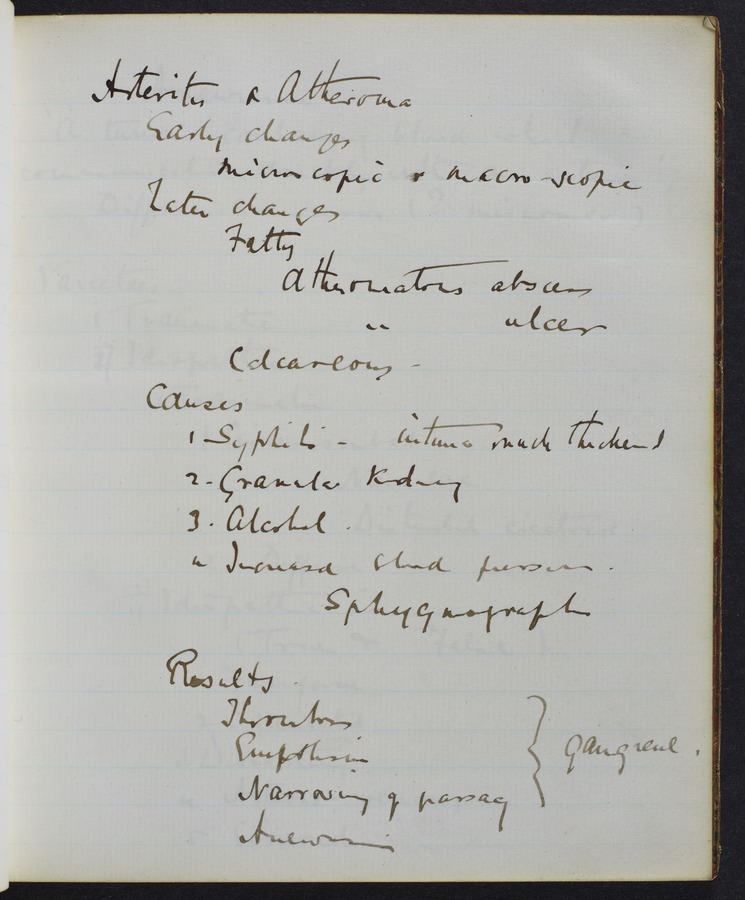 Arteritis & Atheroma
Early changes
microscopic & macro-scopic
Later changes
Fatty
Atheromatous abscess
" ulcer
Calcareous -
Causes
1 - Syphilis - intima much thickened
2 - Granular Kidney
3. Alcohol .
4 Increased blood pressure .
Sphygmograph
Results .
Thrombosis
Embolism
Narrowing of passage
gangrene .
Aneurism